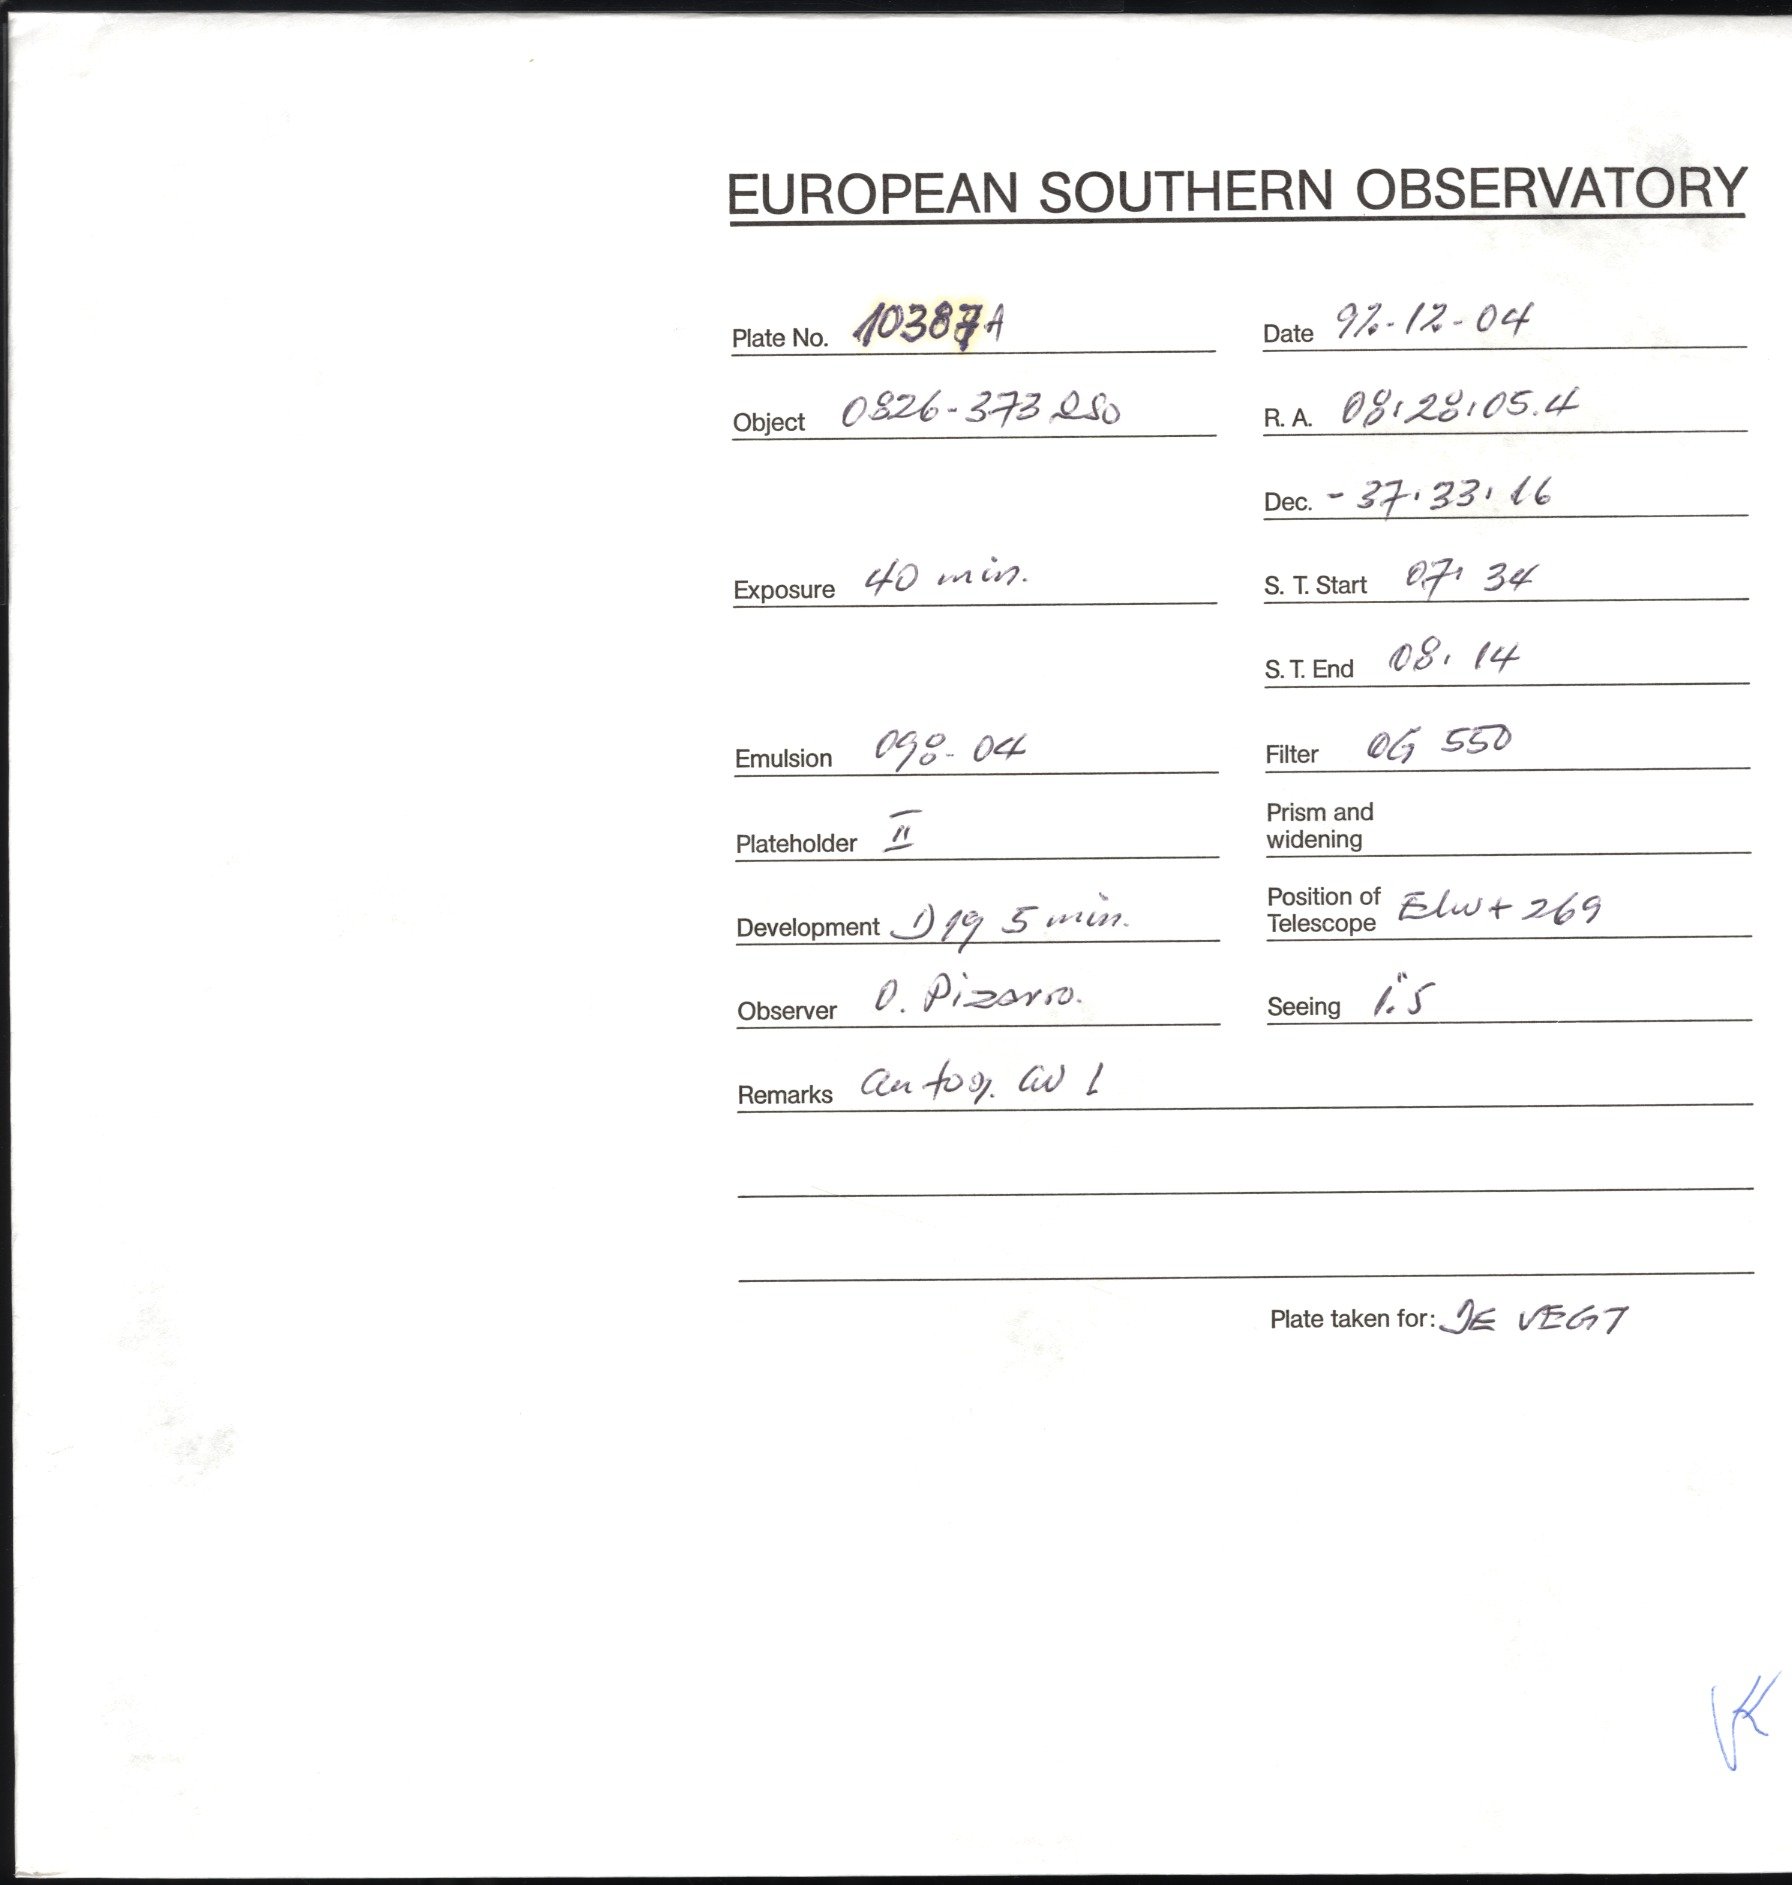 EUROPEAN SOUTHERN OBSERVATORY
Plate No. 10387A Date 92-12-04
Object 0826-373 QSO R. A. 08:28:05.4
Dec. - 37:33:16
Exposure 40 min. S. T. Start 07: 34
S. T. End 08: 14
Emulsion 098-04 Filter OG 550
Plateholder II Prism and
widening
Development D19 5 min. Position of
Telescope E/w + 269
Observer O. Pizarro. Seeing 1."5
Remarks
Plate taken for: DE VEGT